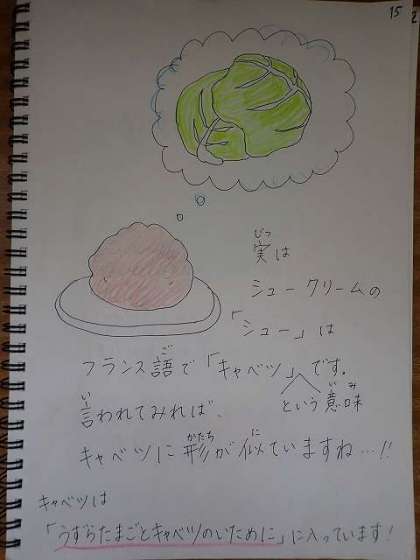 15
2
実は
じつ
シュークリームの
「シュー」は
フランス語で「キャベツ」です。
ご
という意味
いみ
言われてみれば、
い
キャベツに形が似ていますね…!!
かたち
に
キャベツは
「うずらたまごとキャベツのいために」に入っています!